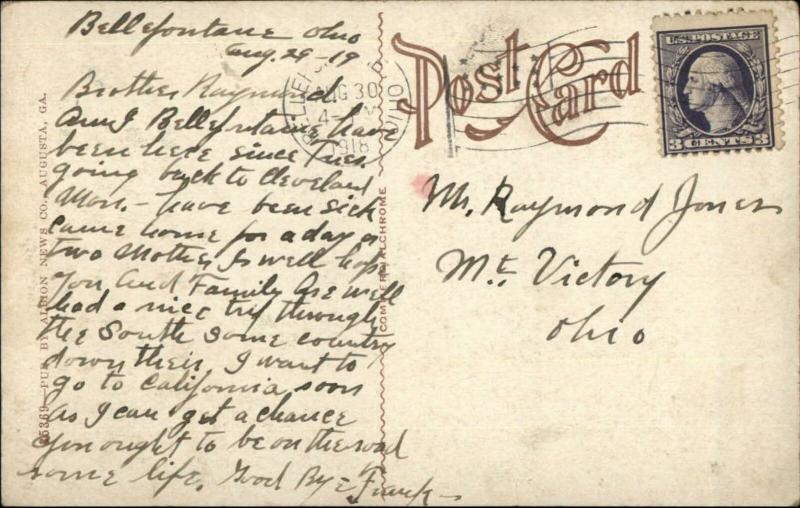 Bellefontaine Ohio
Aug. 29-19
Brother Raymond
Am I Bellefontaine have
been here since Tues.
going back to Cleveland
Mon. - have been sick
came home for a day or
two Mother Is well hope
you and Family are well
had a nice trip through
the South some country
down their, I want to
go to California soon
as I can get a chance
you ought to be on the road
some life. Good Bye Frank
Post Card
AUG 30
4
1918
OHIO
U.S. POSTAGE
3 CENTS 3
Mr. Raymond Jones
Mt. Victory
Ohio
PUB. BY ALBION NEWS CO. AUGUSTA, GA.
COMMERCIALCHROME